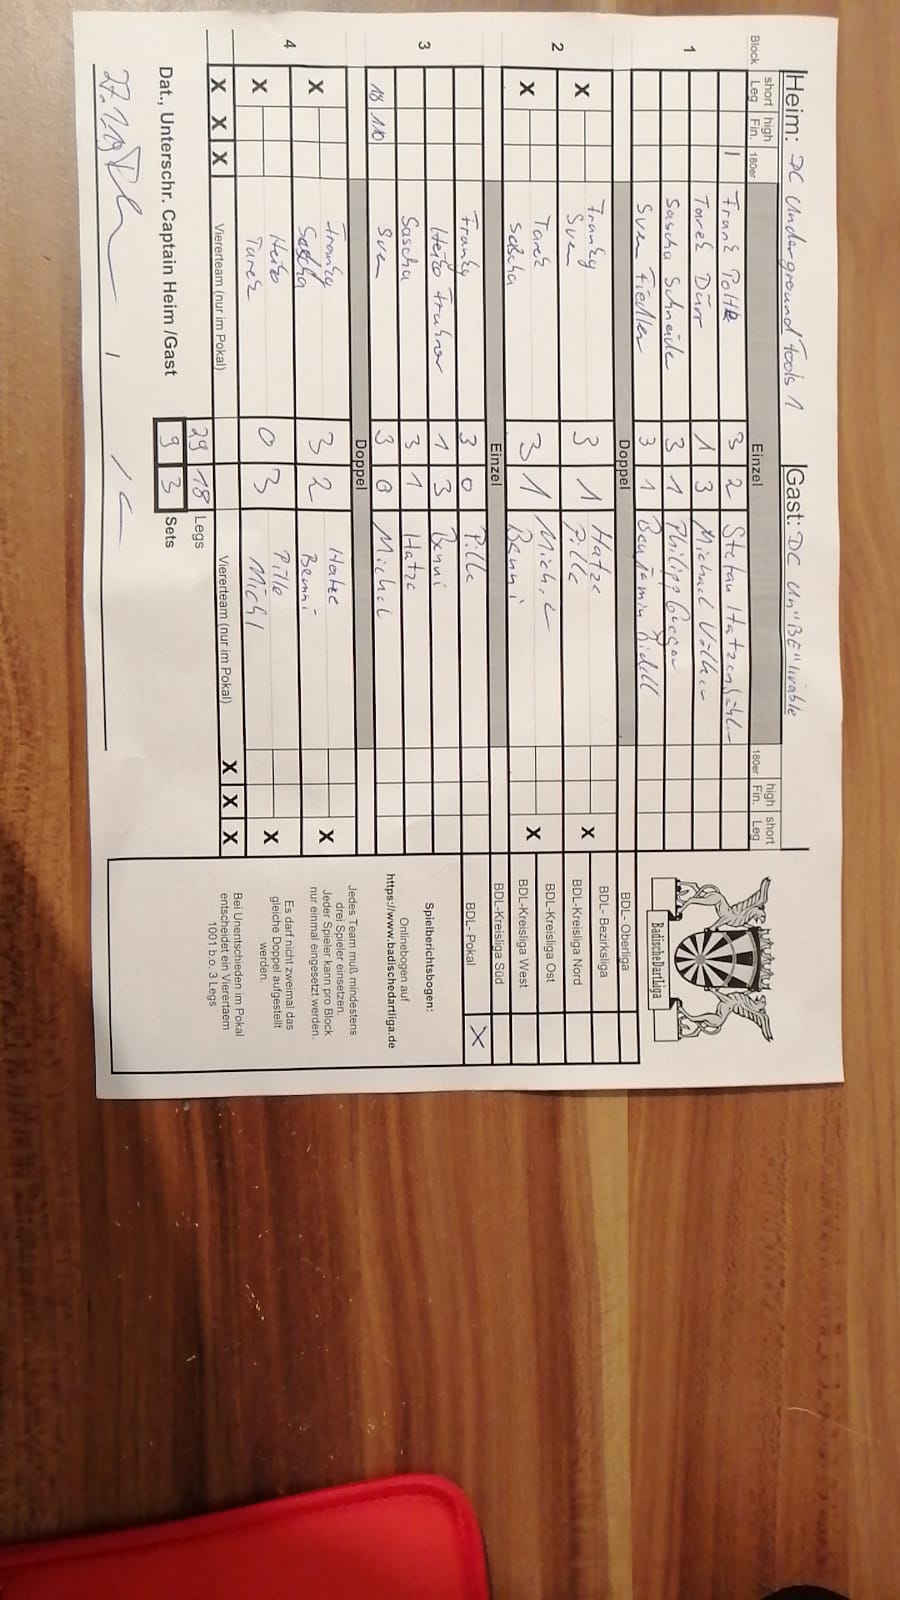 Heim: DC Underground Tools 1 Gast: DC Un"BE"livable
Block short Leg high Fin. 180er Einzel 180er high Fin. short Leg
1 I Frank 3 2 Stefan
Tarek Dürr 1 3 Michael
Sascha Schneider 3 1 Philipp
Sven Fiedler 3 1 Benjamin
Doppel
2 X Franky Sven 3 1 Hatze Pille X
X Tarek Sascha 3 1 Michel Benni X
Einzel
3 Franky 3 0 Pille
Heiko 1 3 Benni
Sascha 3 1 Hatze
18 110 Sven 3 0 Michel
Doppel
4 X Franky Sascha 3 2 Hatze Benni X
X Heiko Tarek 0 3 Pille Michl X
X X X Viererteam (nur im Pokal) Viererteam (nur im Pokal) X X X
29 18 Legs
Dat., Unterschr. Captain Heim /Gast 9 3 Sets
BadischeDartLiga
BDL- Oberliga
BDL- Bezirksliga
BDL-Kreisliga Nord
BDL-Kreisliga Ost
BDL-Kreisliga West
BDL-Kreisliga Süd
BDL- Pokal X
Spielberichtsbogen:
Onlinebogen auf
https://www.badischedartliga.de
Jedes Team muß mindestens
drei Spieler einsetzen.
Jeder Spieler kann pro Block
nur einmal eingesetzt werden.
Es darf nicht zweimal das
gleiche Doppel aufgestellt
werden.
Bei Unentschieden im Pokal
entscheidet ein Viererteam
1001 b.o. 3 Legs